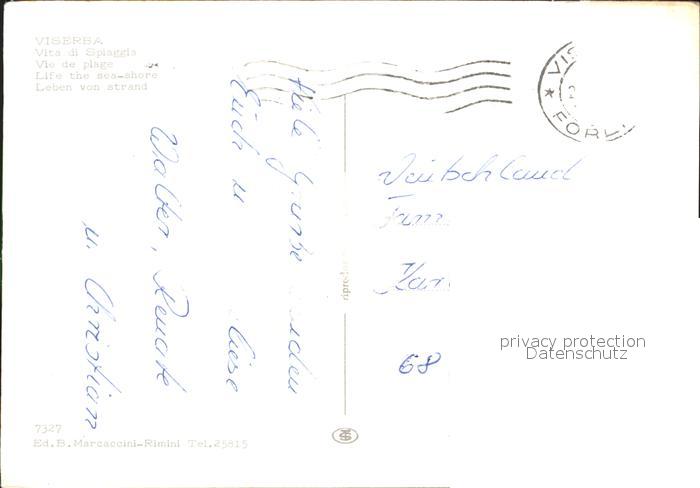 VISERBA
Vita di Spiaggia
Vie de plage
Life the sea-shore
Leben von strand
Viele Grüße senden
Euch u liese
Walter, Renate
u. Christian
VIS
FORLI
Deutschland
Fam
68
riprodu
7327
Ed.B.Marcaccini-Rimini Tel.25815
privacy protection
Datenschutz